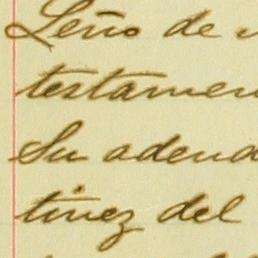 Leño de
testamen
Su adend
tinez del